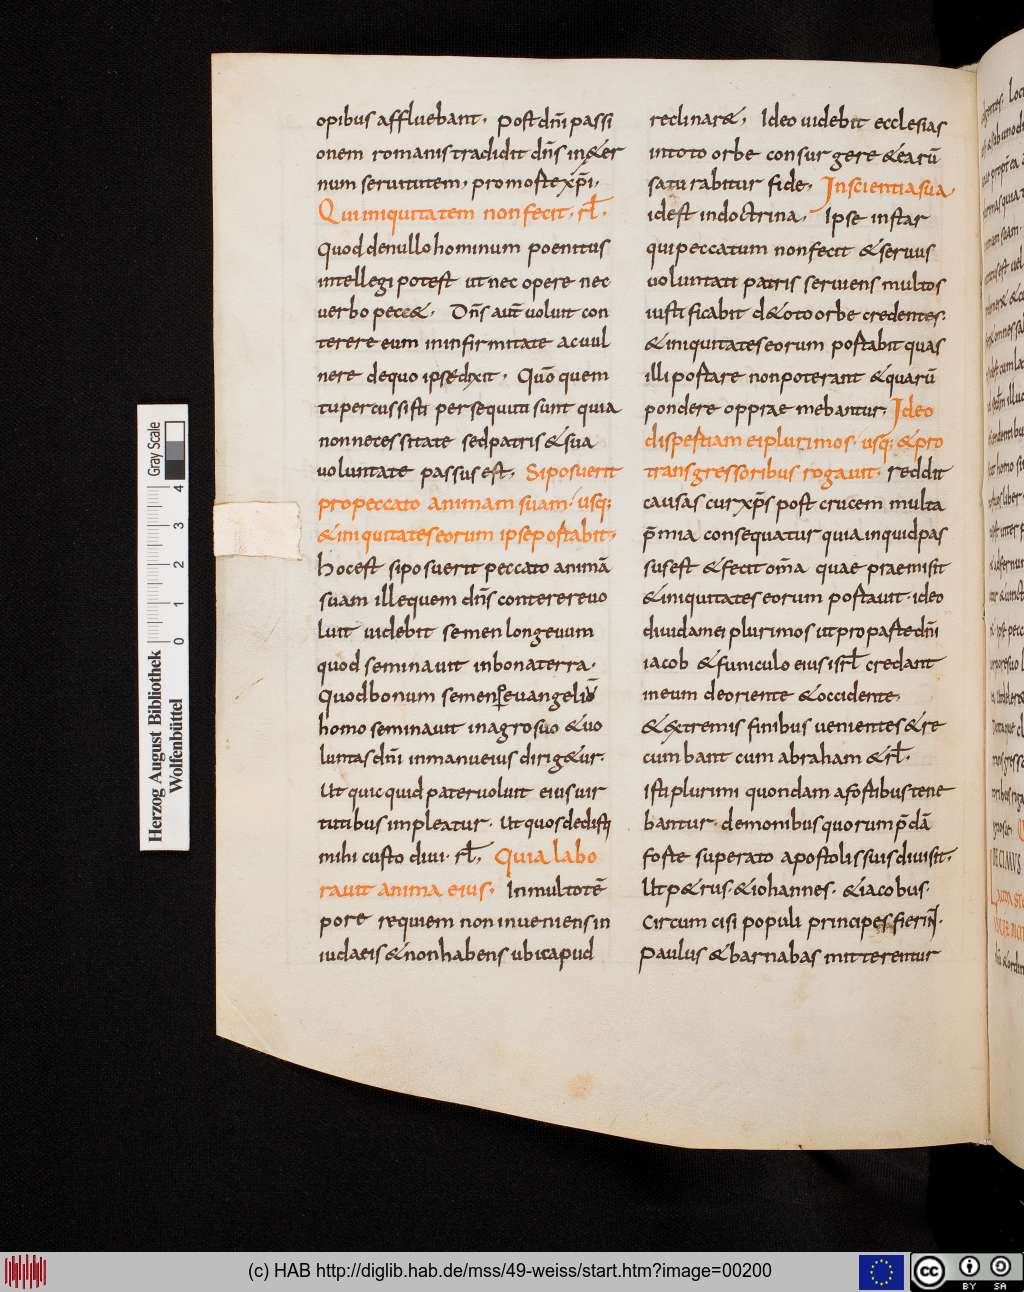 opibus affluebant. Post dn̄i passi
onem romanis tradidit dn̄s in&er
num seruitutem, pro morte xp̄i.
Qui iniquitatem non fecit. rł.
Quod de nullo hominum poenitus
intellegi potest ut nec opere nec
uerbo pecc&. Dn̄s aut̄ uoluit con
terere eum in infirmitate ac uul
nere de quo ipse dixit. Quō quem
tu percussisti persequuti sunt quia
non necessitate sed patris & sua
uoluntate passus est. Si posuerit
pro peccato animam suam. usq;
& iniquitates eorum ipse portabit.
hoc est si posuerit peccato animā
suam ille quem dn̄s conterere uo
luit uidebit semen longeuum
quod seminauit in bona terra.
Quod bonum semen p̱ euangeliū
homo seminauit in agro suo & uo
luntas dn̄i in manu eius dirig&ur.
Ut quicquid pater uoluit eius uir
tutibus impleatur. Ut quos dedisti
mihi custodiui. rł. Quia labo
rauit anima eius. In multo tē
pore requiem non inueniens in
iudaeis & non habens ubi caput
reclinar&, Ideo uidebit ecclesias
in toto orbe consurgere & earū
saturabitur fide. In scientia sua
id est in doctrina. Ipse instar
qui peccatum non fecit & seruus
uoluntati patris seruiens multos
iustificabit d& oto orbe credentes.
& iniquitates eorum portabit quas
illi portare non poterant & quarū
pondere opprae mebantur, Ideo
dispertiam ei plurimos. usq; & pro
transgressoribus rogauit. reddit
causas cur xp̄s post crucem multa
p̄mia consequatur quia inquid pas
sus est & fecit om̄a quae praemisit
& iniquitates eorum portauit. ideo
diuidam ei plurimos ut pro parte dn̄i
iacob & funiculo eius isrł credant
in eum de oriente & occidente
& extremis finibus uenientes & re
cumbant cum abraham & rł.
Isti plurimi quondam a fortibus tene
bantur demonibus quorum p̄dā
forte superato apostolis suis diuisit.
Ut p&rus. & iohannes. & iacobus.
Circumcisi populi principes fierin̄.
Paulus & barnabas mitterentur
Herzog August Bibliothek
Wolfenbüttel
Gray Scale
0 1 2 3 4
(c) HAB http://diglib.hab.de/mss/49-weiss/start.htm?image=00200
cc BY SA